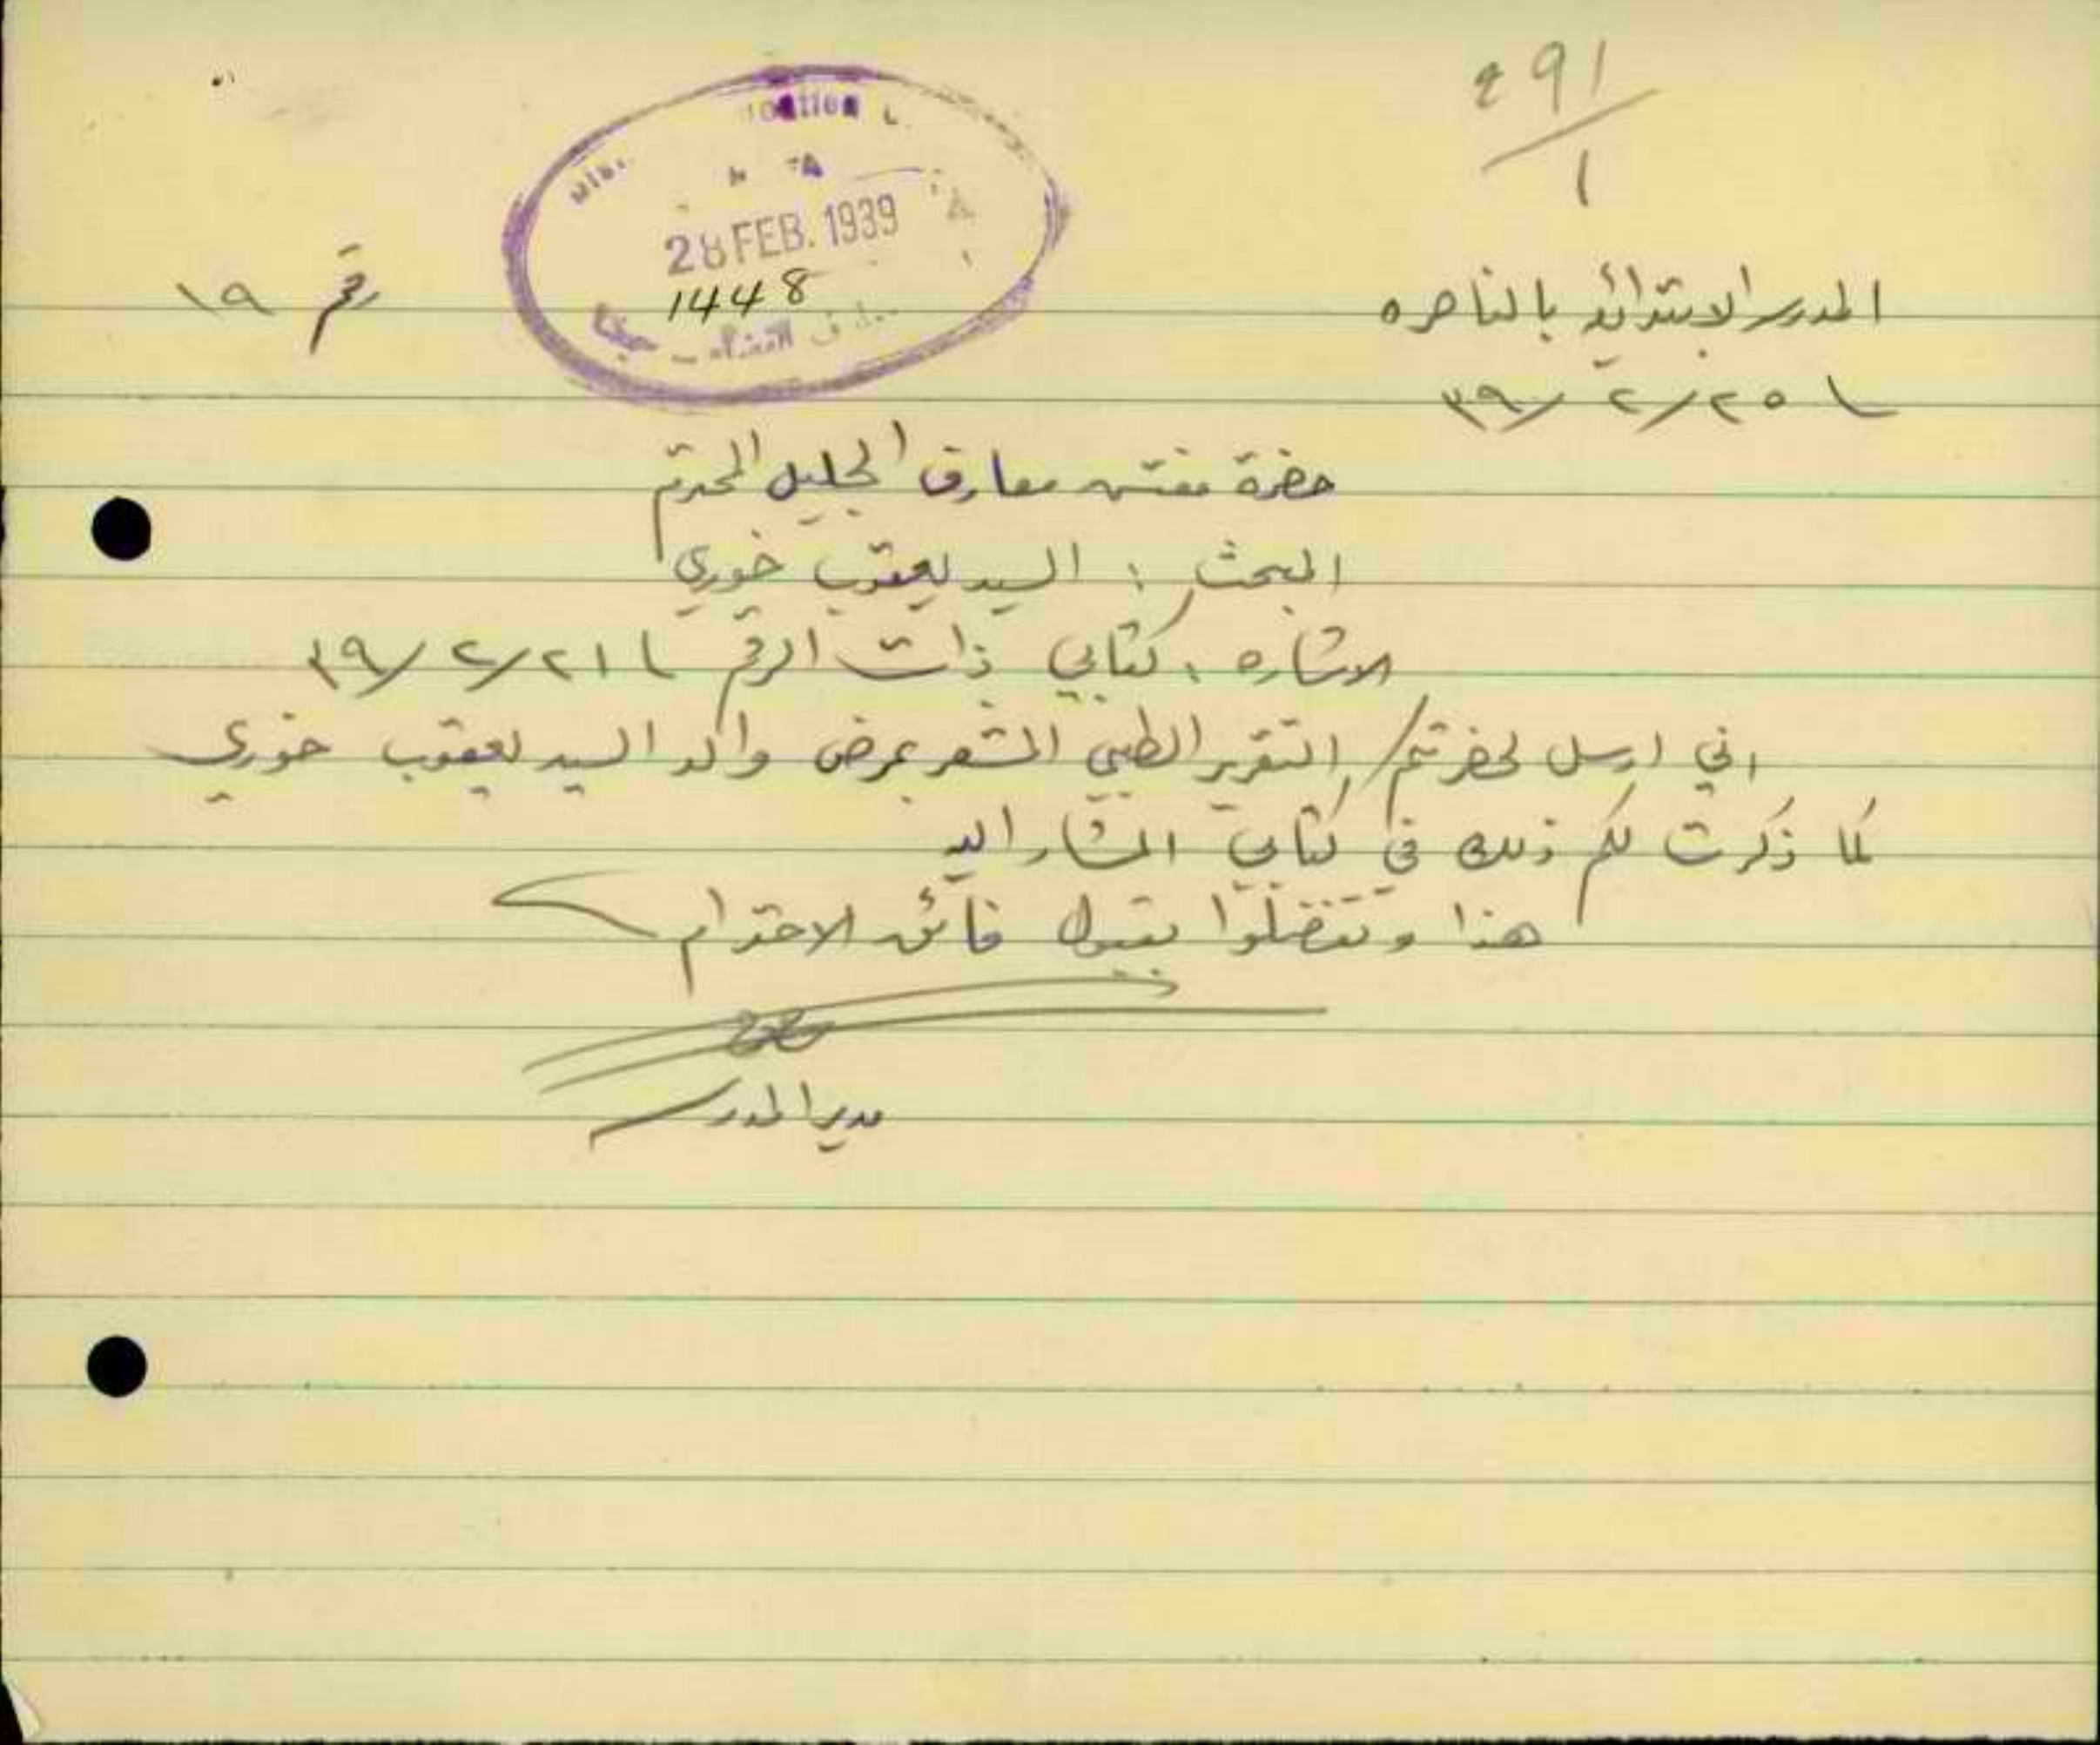 291
1
28 FEB. 1939
1448
حيفا
رقم ١٩
المدرسة الابتدائية بالناصره
٢٥/٢/٣٩
حضرة مفتش معارف الجليل المحترم
البحث : السيد يعقوب خوري
الاشاره : كتابي ذات الرقم ٢١/٢/٣٩
اني ارسل لحضرتكم التقرير الطبي المشعر بمرض والد السيد يعقوب خوري
كما ذكرت لكم ذلك في كتابي المشار اليه
هذا وتفضلوا بقبول فائق الاحترام
مدير المدرسة